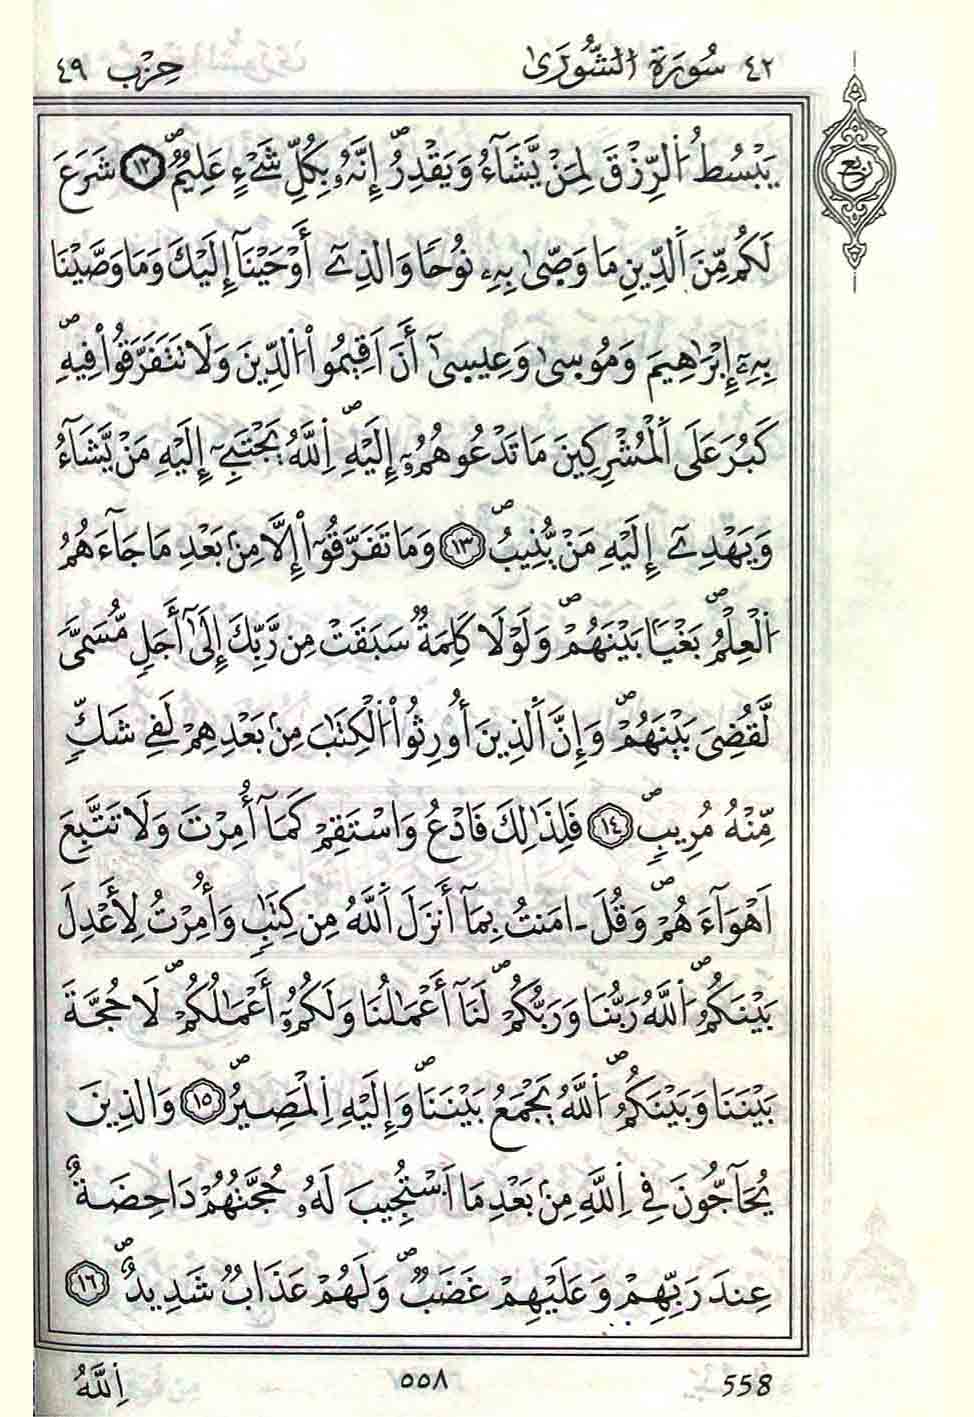 ٤٢ سُورَةُ الشُّورَىٰ حِزْب ٤٩
ربع
يَبْسُطُ اُ۬لرِّزْقَ لِمَنْ يَّشَآءُ وَيَقْدِرُۖ إِنَّهُۥ بِكُلِّ شَےْءٍ عَلِيمٌۖ ١٢ شَرَعَ
لَكُم مِّنَ اَ۬لدِّينِ مَا وَصّ۪ىٰ بِهِۦ نُوحاٗ وَالذِےٓ أَوْحَيْنَآ إِلَيْكَ وَمَا وَصَّيْنَا
بِهِۦٓ إِبْرَٰهِيمَ وَمُوس۪ىٰ وَعِيس۪ىٰٓ أَنَ اَقِيمُواْ اُ۬لدِّينَ وَلَا تَتَفَرَّقُواْ فِيهِۖ
كَبُرَ عَلَى اَ۬لْمُشْرِكِينَ مَا تَدْعُوهُمُۥٓ إِلَيْهِۖ اِ۬للَّهُ يَجْتَبِےٓ إِلَيْهِ مَنْ يَّشَآءُ
وَيَهْدِےٓ إِلَيْهِ مَنْ يُّنِيبُۖ ١٣ وَمَا تَفَرَّقُوٓاْ إِلَّا مِنۢ بَعْدِ مَا جَآءَهُمُ
اُ۬لْعِلْمُۖ بَغْياَۢ بَيْنَهُمْۖ وَلَوْلَا كَلِمَةٞ سَبَقَتْ مِن رَّبِّكَ إِلَىٰٓ أَجَلٖ مُّسَمّىٗ
لَّقُضِيَ بَيْنَهُمْۖ وَإِنَّ اَ۬لذِينَ أُورِثُواْ اُ۬لْكِتَٰبَ مِنۢ بَعْدِهِمْ لَفِے شَكّٖ
مِّنْهُ مُرِيبٖۖ ١٤ فَلِذَٰلِكَ فَادْعُ وَاسْتَقِمْ كَمَآ أُمِرْتَ وَلَا تَتَّبِعَ
اَهْوَآءَهُمْۖ وَقُلَ ـ اٰمَنتُ بِمَآ أَنزَلَ اَ۬للَّهُ مِن كِتَٰبٖ وَأُمِرْتُ لِأَعْدِلَ
بَيْنَكُمُۖ اُ۬للَّهُ رَبُّنَا وَرَبُّكُمْۖ لَنَآ أَعْمَٰلُنَا وَلَكُمُۥٓ أَعْمَٰلُكُمْۖ لَا حُجَّةَ
بَيْنَنَا وَبَيْنَكُمُۖ اُ۬للَّهُ يَجْمَعُ بَيْنَنَاۖ وَإِلَيْهِ اِ۬لْمَصِيرُۖ ١٥ وَالذِينَ
يُحَآجُّونَ فِي اِ۬للَّهِ مِنۢ بَعْدِ مَا اَ۟سْتُجِيبَ لَهُۥ حُجَّتُهُمْ دَاحِضَةٌ
عِندَ رَبِّهِمْ وَعَلَيْهِمْ غَضَبٞۖ وَلَهُمْ عَذَابٞ شَدِيدٌۖ ١٦
558 ٥٥٨ اِ۬للَّهُ